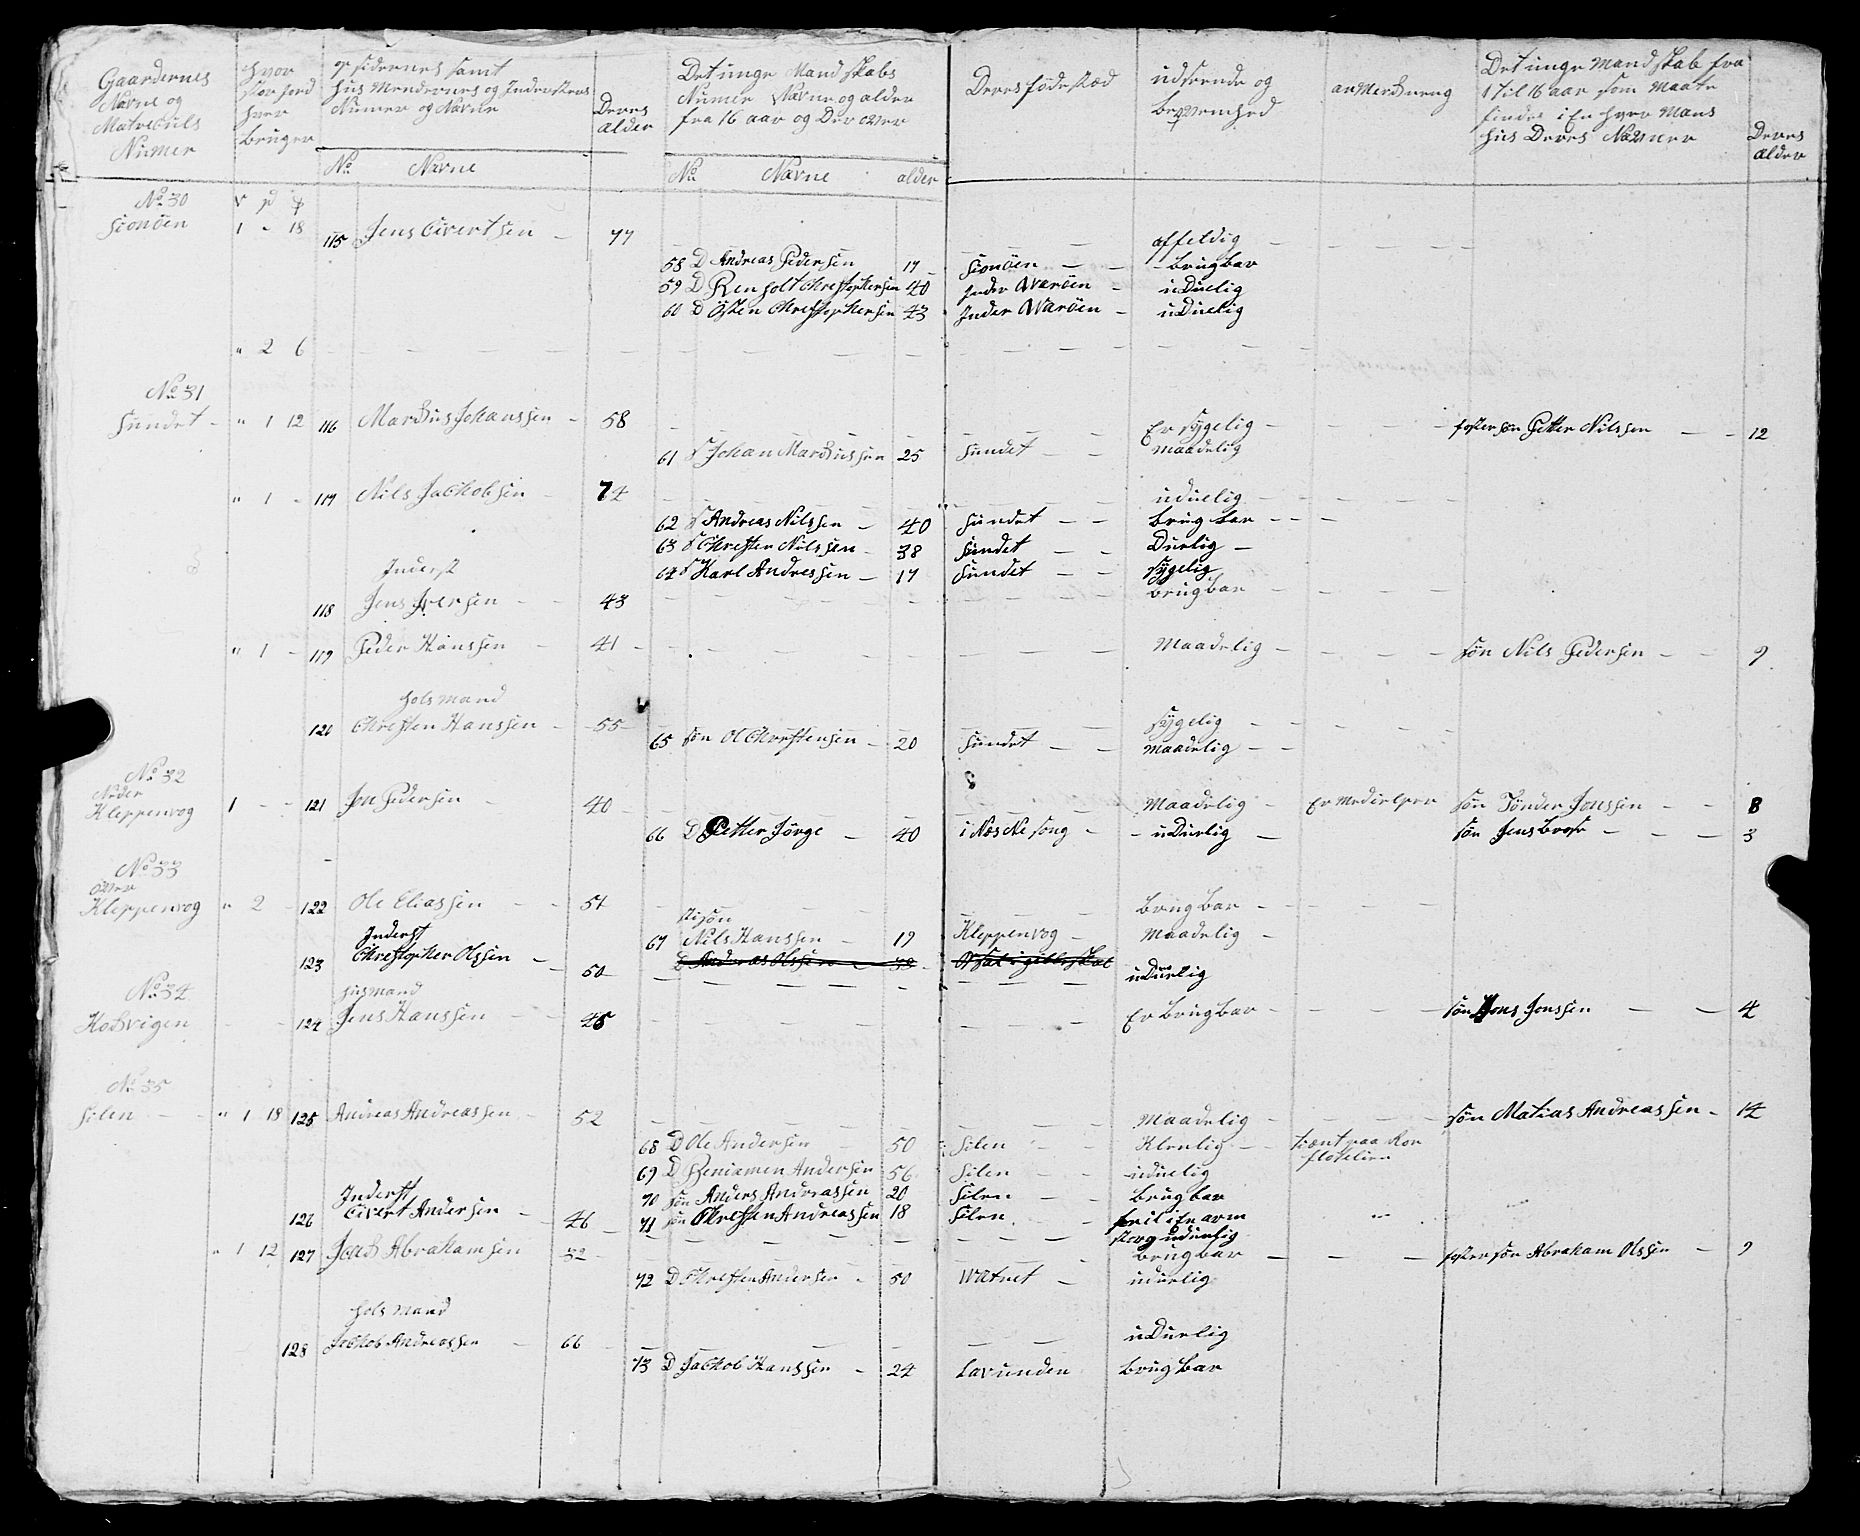 Gaardernes Navne og Matreculs Numer
hvor stor jord hver bruger
opsidernes samt hus Mendernes og Indersters Numer og Navne
Deres alder
Det unge Mandskabs Numer Navne og alder fra 16 aar og Der over
Deres föde stæd
udseende og beqvemhed
anMerkneng
Det unge Mandskab fra 1 til 16 aar som Maate findes i En hver Mans hus Deres Navner
Deres alder
No Navne No Navne alder
No 30
Sionöen 1 - 18 115 Jens Civertsen - 77 affeldig
58 D Andreas Pedersen 17 Sionöen - brugbar
59 D Renholt Chrestophersen 40 Inder Waröen - uDuelig
60 D Östen Chrestophersen 43 Inder Waröen - uDuelig
" 2 6
No 31
Sundet - " 1 12 116 Markus Johanssen - 58 Er sygelig - foster sön Petter Nilssen - 12
61 S Johan Markussen 25 Sundet - maadelig
" 1 - 117 Nils Jachobsen - 74 uduelig
62 S Andreas Nilssen - 40 Sundet - brugbar
63 S Chresten Nilssen - 38 Sundet - Duelig
64 S Karl Andressen - 17 Sundet - sygelig
Inderst
118 Jens Iversen - 43 brugbar
" 1 - 119 Peder Hanssen - 41 Maadelig - sön Nils Pedersen - 9
holsmand
120 Chresten Hanssen - 55 sygelig
65 sön Ol Chrestensen - 20 Sundet - maadelig
No 32
Neder
Kleppenvog 1 - - 121 Jon Pedersen - 40 Maadelig - Er Medielper sön Tönder Jonssen - 8
66 D Petter Jörge - 40 i Næs Ne song - uDuelig - sön Jens brose - 3
No 33
över
Kleppenvog " 2 - 122 Ole Eliassen - 51 brugbar
stisön
67 Nils Hanssen - 19 Kleppenvog - Maadelig
Inderst
123 Chrestopher Olssen - 50 uDuelig
D Andreas Olssen
No 34
husmand
Kobvigen 124 Jens Hanssen - 45 Er brugbar - sön Jons Jonssen - 4
No 35
Silen - " 1 18 125 Andreas Andreassen - 52 Maadelig - sön Matias Andreassen - 14
68 D Ole Andersen - 50 Silen - Klenlig - tiænt paa Ron flotelien
69 D Beniamen Andersen 56 Silen - uduelig
70 sön Anders Andreassen 20 Silen - brugbar
Inderst
126 Civert Andersen - 46
71 sön Chresten Andreassen 18 Silen - feil i En arm
uduelig
" 1 12 127 Jonas Abrahamsen 32 - brugbar - foster sön Abraham Olssen - 9
72 D Chresten Andersen - 50 Watnet - uduelig
holsmand
128 Jachob Andreassen - 66 uDuelig
73 D Jachob Hanssen - 24 Lavunden brugbar